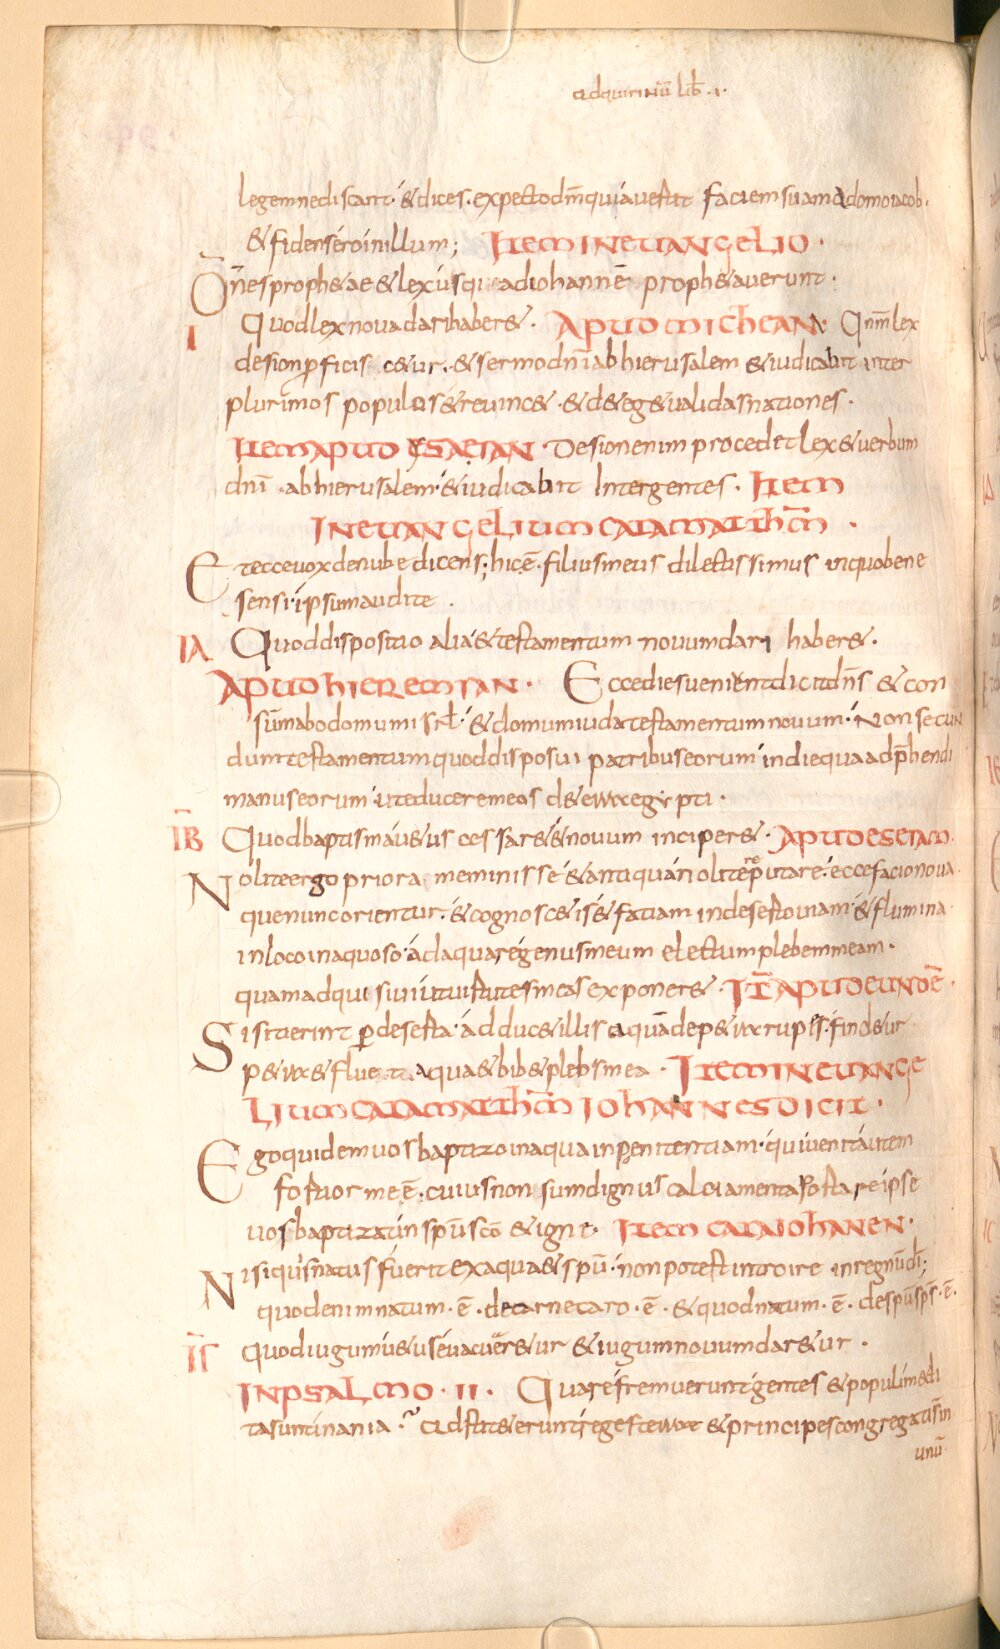 adquirinū lib̄ · i ·
legem ne discant · & dices · expecto dm̄ qui avertit faciem suam a domo iacob ·
& fidens ero in illum ; ITEM IN EVANGELIO ·
Om̄nes proph&ae & lex usq; ad iohannē proph&averunt ·
I Quod lex nova dari haber& · APUD MICHEAN Qnm̄ lex
de sion p̄ficisc&ur · & sermo dn̄i ab hierusalem & iudicabit inter
plurimos populos & revinc& · & d&eg& validas nationes ·
ITEM APUD YSAEIAN · De sion enim procedet lex & verbum
dn̄i · ab hierusalem · & iudicabit Inter gentes · ITEM
IN EVANGELIUM CATA MATTHEM̄ ·
Et ecce vox de nube dicens ; hic ē · filius meus dilectissimus in quo bene
sensi · ipsum audite ·
IA Quod dispositio alia & testamentum novum dari haber& ·
APUD HIEREMIAN · Ecce dies venient dicit dn̄s & con
sūmabo domum isrl̄ · & domum iuda testamentum novum · Non secun
dum testamentum quod disposui patribus eorum in die qua adp̄hendi
manus eorum · ut educerem eos de terra egypti ·
IB Quod baptisma v&us cessar& & novum incipere · APUD ESEIAM
Nolite ergo priora meminisse & antiqua nolite reputare · ecce facio nova
que nunc orientur · & cognosc&is & faciam in deserto viam · & flumina
in loco inaquoso · adaquare genus meum electum plebem meam ·
quam adquisivi ut virtutes meas exponer& · IT̄ APUD EUNDĒ ·
Si sitierint p̄ deserta · adduc& illis aquā de p&ra rupis · find&ur
p&ra & fluet aqua & bib& plebs mea · ITEM IN EVANGE
LIUM CATA MATTHEM̄ IOHANNES DICIT ·
Ego quidem vos baptizo in aqua in penitentiam · qui venit autem
fortior me ē · cuius non sum dignus calciamenta portare ipse
vos baptizat in spū scō & igne · ITEM CATA IOHANEN ·
Nisi quis natus fuerit ex aqua & spū · non potest introire in regnū dī ;
quod enim natum · ē · de carne caro · ē · & quod natum · ē · de spū sps̄ · ē ·
IΓ Quod iugum v&us evacuar&ur & iugum novum dar&ur ·
IN PSALMO · II · Quare fremuerunt gentes & populi medi
ta sunt inania · Adstiterunt reges terrae & principes congregati s̄ in
unū